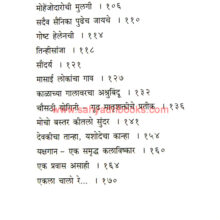 मोहेंजोदारोची मुलगी । १०६
सदैव सैनिका पुढेच जायचे । ११०
गोष्ट हेलेनची । ११४
तिन्हीसांजा । ११८
सौंदर्य । १२१
मासाई लोकांचा गाव । १२७
काळाच्या गालावरचा अश्रुबिंदू । १३२
चौसष्टी योगिनी – गूढ मातृशक्तीचे प्रतीक । १३६
माचो बस्तर कीतलो सुंदर । १४१
देवकीचा तान्हा, यशोदेचा कान्हा । १५४
यक्षगान – एक समृद्ध कलाविष्कार । १६०
एक प्रवास असाही । १६४
एकला चालो रे... । १७०